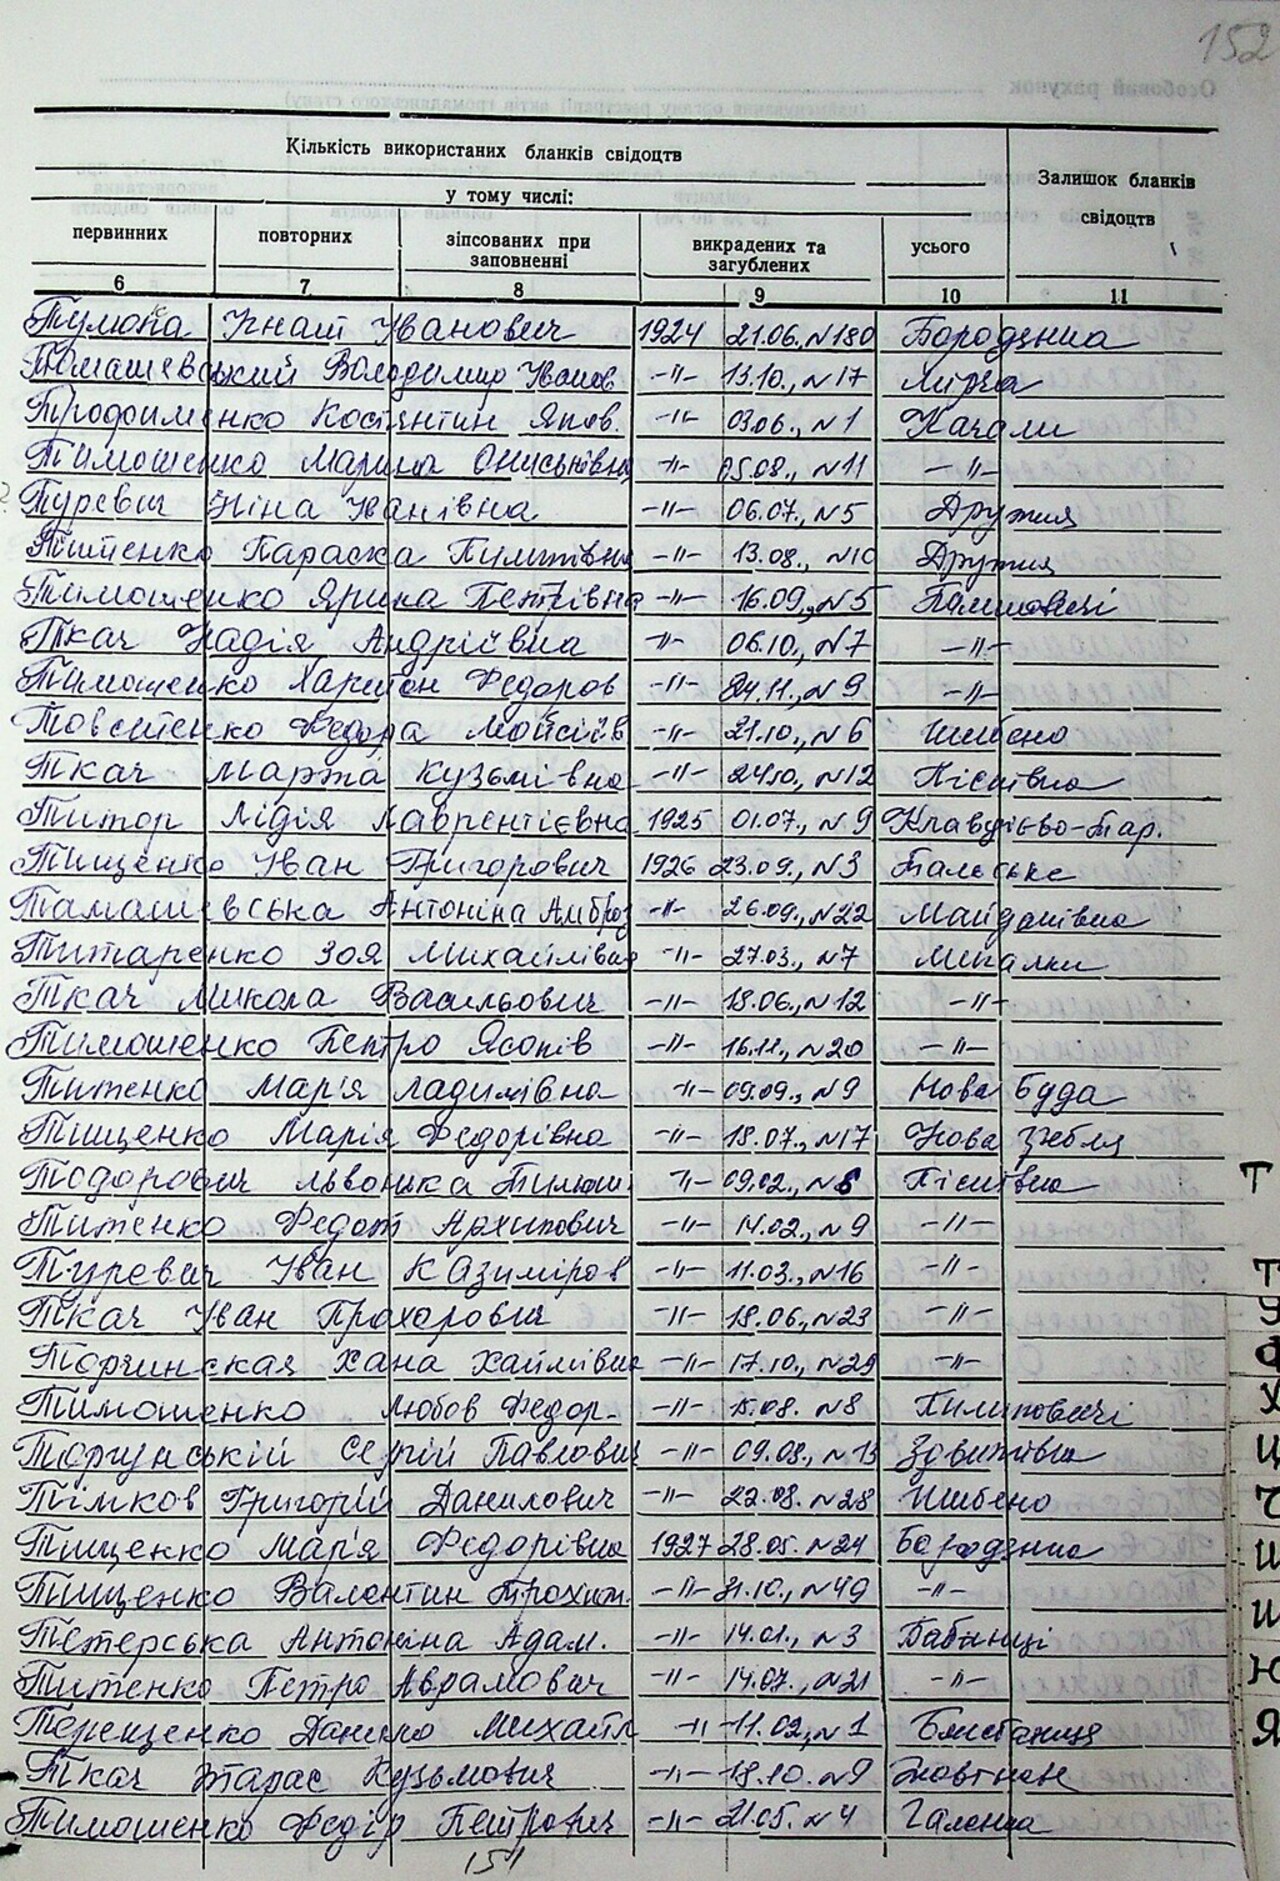 152
Кількість використаних бланків свідоцтв
Залишок бланків свідоцтв
у тому числі:
первинних повторних зіпсованих при заповненні викрадених та загублених усього
6 7 8 9 10 11
Ігнат Іванович 1924 21.06., N180 Бородянка
Томашевський Володимир Іванов -"- 13.10., N17 Мирча
Трофименко Костянтин Яков. -"- 03.06., N1 Качали
Тимошенко Марина Ониськівна -"- 05.08., N11 -"-
Туревич Ніна Іванівна -"- 06.07., N5 Дружня
Титенко Параска Пилипівна -"- 13.08., N10 Дружня
Тимошенко Ярина Петрівна -"- 16.09., N5
Ткач Надія Андріївна -"- 06.10., N7 -"-
Тимошенко Харитон Федоров -"- 24.11., N9 -"-
Товстенко Федора Мойсіїв -"- 21.10., N6 Шибено
Ткач Марта Кузьмівна -"- 24.10., N12 Пісківка
Титор Лідія Лаврентієвна 1925 01.07., N9 Клавдієво-Тар.
Тищенко Іван Григорович 1926 23.09., N3 Тальське
Тамашевська Антоніна Амброз -"- 26.09., N22 Майданівка
Титаренко Зоя Михайлівна -"- 27.03., N7 Мигалки
Ткач Микола Васильович -"- 18.06., N12 -"-
Тимошенко Петро Ясонів -"- 16.11., N20 -"-
Титенко Мар'я Ладимівна -"- 09.09., N9 Нова Буда
Тищенко Марія Федорівна -"- 18.07., N17 Нова Гребля
Тодорович -"- 09.02., N6 Пісківка
Титенко Федот Архипович -"- 14.02., N9 -"-
Туревич Іван Казиміров -"- 11.03., N16 -"-
Ткач Іван Прохорович -"- 18.06., N23 -"-
Торчинская Хана Хаймівна -"- 17.10., N29 -"-
Тимошенко Любов Федор- -"- 15.08. N8 Пилиповичі
Торчунській Сергій Павлович -"- 09.08., N13 Здвижівка
Тімков Григорій Данилович -"- 22.08. N28 Шибено
Тищенко Мар'я Федорівна 1927 28.05. N24 Бородянка
Тищенко Валентин Трохим. -"- 31.10., N49 -"-
Тетерська Антоніна Адам. -"- 14.01., N3 Бабинці
Титенко Петро Аврамович -"- 14.07., N21 -"-
Терещенко Данило Михайл -"- 11.02, N1 Блиставиця
Ткач Тарас Кузьмович -"- 18.10. N9 Жовтнев
Тимошенко Федір Петрович -"- 21.05. N4 Галенка
151
Т
Т
У
Ф
Х
Ц
Ч
Ш
Щ
Ю
Я